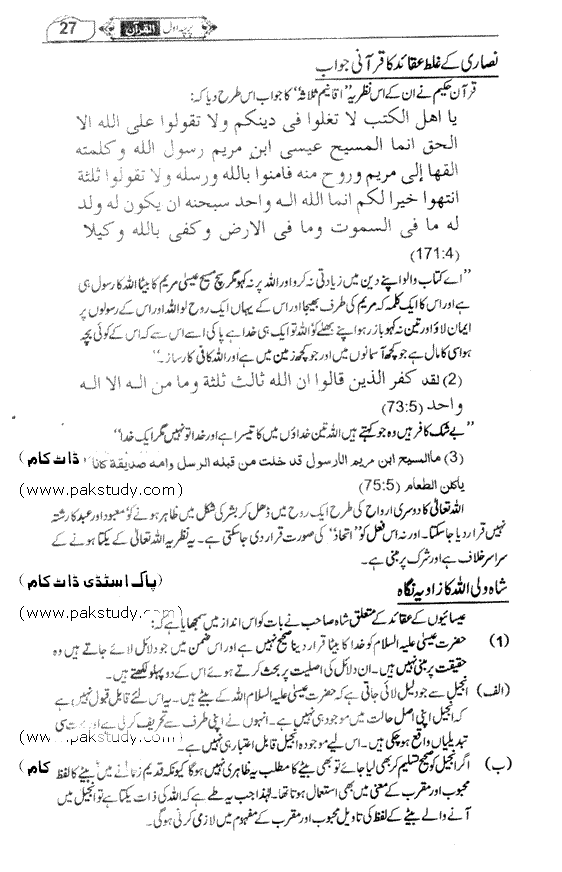 27 القرآن پرچہ اول
نصاریٰ کے غلط عقائد کا قرآنی جواب
قرآن حکیم نے ان کے اس نظریہ "اقانیم ثلاثہ" کا جواب اس طرح دیا کہ:
یا اهل الکتب لا تغلوا فی دینکم ولا تقولوا علی الله الا
الحق انما المسیح عیسی ابن مریم رسول الله وکلمته
القها إلی مریم وروح منه فامنوا بالله ورسله ولا تقولوا ثلثة
انتهوا خیرا لکم انما الله اله واحد سبحنه ان یکون له ولد
له ما فی السموت وما فی الارض وکفی بالله وکیلا
(171:4)
"اے کتاب والو اپنے دین میں زیادتی نہ کرو اور اللہ پر نہ کہو مگر سچ مسیح عیسیٰ مریم کا بیٹا اللہ کا رسول ہی
ہے اور اس کا ایک کلمہ کہ مریم کی طرف بھیجا اور اس کے یہاں ایک روح لو اللہ اور اس کے رسولوں پر
ایمان لاؤ اور تین نہ کہو باز رہو اپنے بھلے کو اللہ تو ایک ہی خدا ہے پاکی اسے اس سے کہ اس کے کوئی بچہ
ہو اسی کا مال ہے جو کچھ آسمانوں میں اور جو کچھ زمین میں ہے اور اللہ کافی کارساز۔"
(2) لقد کفر الذین قالوا ان الله ثالث ثلثة وما من اله الا اله
واحد (73:5)
"بے شک کافر ہیں وہ جو کہتے ہیں اللہ تین خداؤں میں کا تیسرا ہے اور خدا تو نہیں مگر ایک خدا"
(3) ما المسیح ابن مریم الا رسول قد خلت من قبله الرسل وامه صدیقة کانا ڈاٹ کام )
یاکلن الطعام (75:5) (www.pakstudy.com)
اللہ تعالیٰ کا دوسری ارواح کی طرح ایک روح میں ڈھل کر بشر کی شکل میں ظاہر ہونے کو معبود اور عبد کا رشتہ
نہیں قرار دیا جا سکتا۔ اور نہ اس فعل کو "اتحاد" کی صورت قرار دی جا سکتی ہے۔ یہ نظریہ اللہ تعالیٰ کے یکتا ہونے کے
سراسر خلاف ہے اور شرک پر مبنی ہے۔
شاہ ولی اللہ کا زاویہ نگاہ پاک اسٹڈی ڈاٹ کام )
عیسائیوں کے عقائد کے متعلق شاہ صاحب نے بات کو اس انداز میں سمجھایا ہے کہ: (www.pakstudy.com)
(1) حضرت عیسیٰ علیہ السلام کو خدا کا بیٹا قرار دینا صحیح نہیں ہے اور اس ضمن میں جو دلائل لائے جاتے ہیں وہ
حقیقت پر مبنی نہیں ہیں۔ ان دلائل کی اصلیت پر بحث کرتے ہوئے اس کے دو پہلو لکھتے ہیں۔
(الف) انجیل سے جو دلیل لائی جاتی ہے کہ حضرت عیسیٰ علیہ السلام اللہ کے بیٹے ہیں۔ یہ اس لئے قابل قبول نہیں ہے
کہ انجیل اپنی اصل حالت میں موجود ہی نہیں ہے۔ انہوں نے اپنی طرف سے تحریف کر لی ہے اور بہت سی
تبدیلیاں واقع ہو چکی ہیں۔ اس لیے موجودہ انجیل قابل اعتبار ہی نہیں ہے۔ (www.pakstudy.com)
(ب) اگر انجیل کو صحیح تسلیم کر بھی لیا جائے تو بھی بیٹے کا مطلب یہ ظاہری نہیں ہوگا کیونکہ قدیم زمانے میں بیٹے کا لفظ کام )
محبوب اور مقرب کے معنی میں بھی استعمال ہوتا تھا۔ لہٰذا جب یہ طے ہے کہ اللہ کی ذات یکتا ہے تو انجیل میں
آنے والے بیٹے کے لفظ کی تاویل محبوب اور مقرب کے مفہوم میں لازمی کرنی ہو گی۔